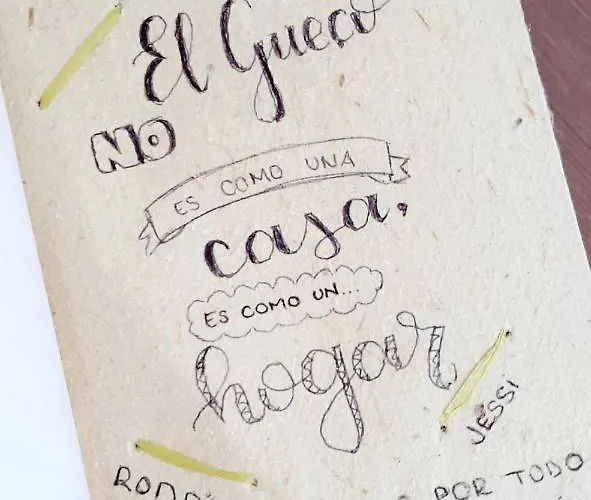 El Gueco
NO
ES COMO UNA
casa,
ES COMO UN...
hogar
JESSI
POR TODO